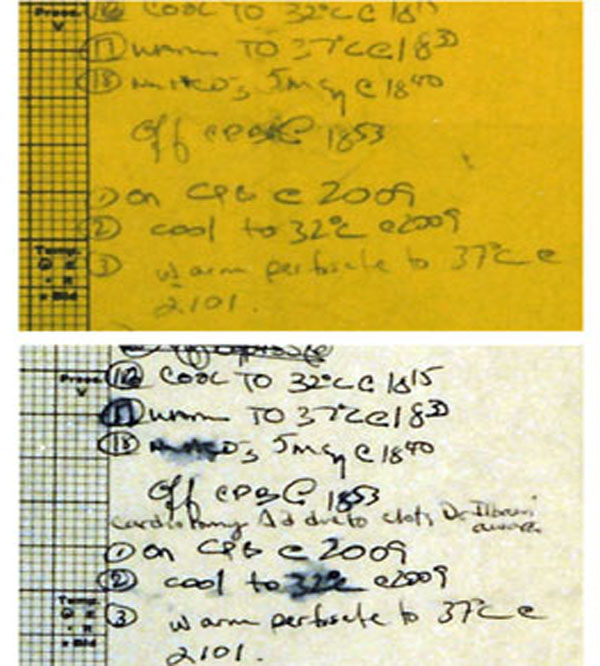 Press.
V
16 COOL TO 32°C @ 18 15
17 warm TO 37°C @ 18 30
18 NaHCO3 5mEq @ 18 40
Off CPB @ 1853
1 on CPB @ 2009
2 cool to 32°C @ 2009
Temp.
3 warm perfusate to 37°C @
2101.
Press.
V
16 COOL TO 32°C @ 18 15
17 warm TO 37°C @ 18 30
18 5mEq @ 18 40
Off CPB @ 1853
cardiotomy Δd due to clots Dr. aware
1 on CPB @ 2009
2 cool to 32°C @ 2009
3 warm perfusate to 37°C @
2101.